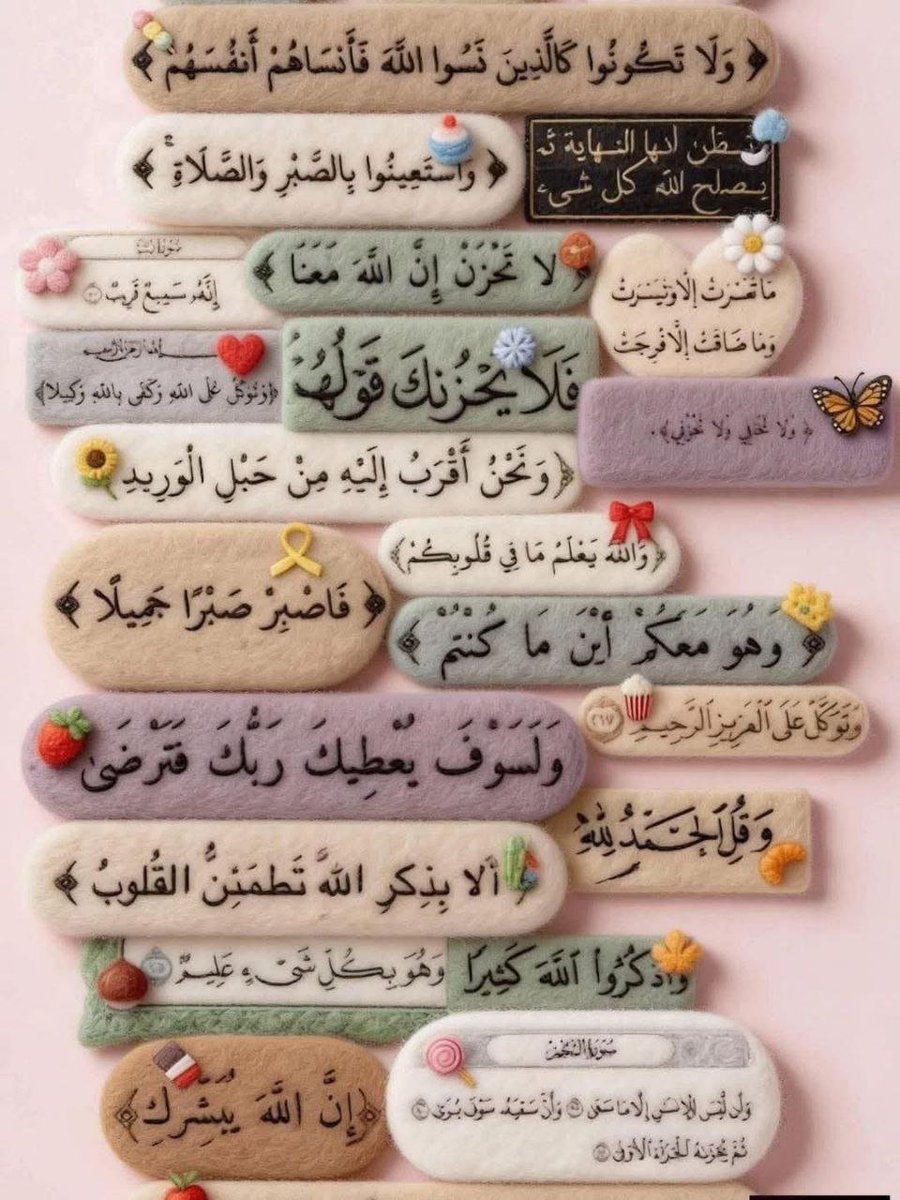 ﴿وَلَا تَكُونُوا كَالَّذِينَ نَسُوا اللَّهَ فَأَنسَاهُمْ أَنفُسَهُمْ﴾
﴿وَاسْتَعِينُوا بِالصَّبْرِ وَالصَّلَاةِ ۚ﴾
تظن انها النهاية ثم
يصلح الله كل شيء
إِنَّهُ سَمِيعٌ قَرِيبٌ
لَا تَحْزَنْ إِنَّ اللَّهَ مَعَنَا﴾
مَا تَعَسَّرَتْ إِلَّا وَتَيَسَّرَتْ
وَمَا ضَاقَتْ إِلَّا فُرِجَتْ
﴿وَتَوَكَّلْ عَلَى اللَّهِ وَكَفَى بِاللَّهِ وَكِيلًا﴾
فَلَا يَحْزُنكَ قَوْلُهُمْ
﴿وَلَا تَخَافِي وَلَا تَحْزَنِي﴾.
﴿وَنَحْنُ أَقْرَبُ إِلَيْهِ مِنْ حَبْلِ الْوَرِيدِ
﴿وَاللَّهُ يَعْلَمُ مَا فِي قُلُوبِكُمْ﴾
﴿فَاصْبِرْ صَبْرًا جَمِيلًا﴾
﴿وَهُوَ مَعَكُمْ أَيْنَ مَا كُنْتُمْ﴾
وَتَوَكَّلْ عَلَى الْعَزِيزِ الرَّحِيمِ ٢١٧
وَلَسَوْفَ يُعْطِيكَ رَبُّكَ فَتَرْضَىٰ
وَقُلِ الْحَمْدُ لِلَّهِ
أَلَا بِذِكْرِ اللَّهِ تَطْمَئِنُّ الْقُلُوبُ﴾
وَهُوَ بِكُلِّ شَيْءٍ عَلِيمٌ
وَاذْكُرُوا اللَّهَ كَثِيرًا
﴿إِنَّ اللَّهَ يُبَشِّرُكِ﴾
سُورَةُ النَّجْمِ
وَأَن لَّيْسَ لِلْإِنسَٰنِ إِلَّا مَا سَعَىٰ وَأَنَّ سَعْيَهُ سَوْفَ يُرَىٰ
ثُمَّ يُجْزَىٰهُ الْجَزَاءَ الْأَوْفَىٰ